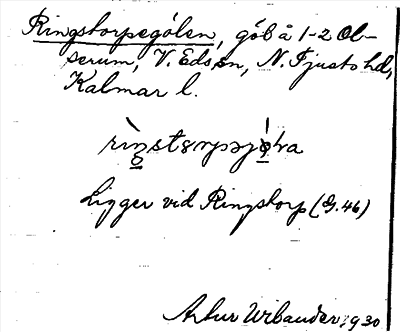 Ringstorpegölen, göl å 1-2 Ol-
serum, V. Eds sn, N. Tjusts hd,
Kalmar l.
Ligger vid Ringstorp (G. 46)
Artur Urbander 1930